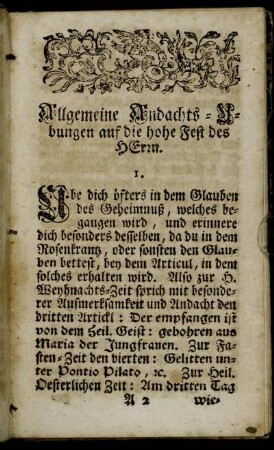 Allgemeine Andachts-U-
bungen auf die hohe Fest des
HErrn.
1.
Ube dich öfters in dem Glauben
des Geheimnuß, welches be-
gangen wird, und erinnere
dich besonders desselben, da du in dem
Rosenkrantz, oder sonsten den Glau-
ben bettest, bey dem Articul, in dem
solches erhalten wird. Also zur H.
Weyhnachts-Zeit sprich mit besonde-
rer Aufmerksamkeit und Andacht den
dritten Artickl: Der empfangen ist
von dem Heil. Geist: gebohren aus
Maria der Jungfrauen. Zur Fa-
sten-Zeit den vierten: Gelitten un-
ter Pontio Pilato, ꝛc. Zur Heil.
Oesterlichen Zeit: Am dritten Tag
A 2 wie-